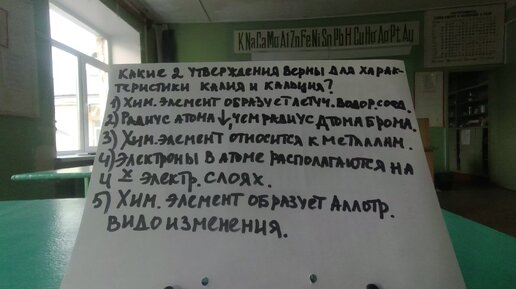 K Na Ca Mg Al Zn Fe Ni Sn Pb H Cu Hg Ag Pt Au
КАКИЕ 2 УТВЕРЖДЕНИЯ ВЕРНЫ ДЛЯ ХАРАК-
ТЕРИСТИКИ КАЛИЯ И КАЛЬЦИЯ?
1) ХИМ. ЭЛЕМЕНТ ОБРАЗУЕТ ЛЕТУЧ. ВОДОР. СОЕД.
2) РАДИУС АТОМА ↓, ЧЕМ РАДИУС АТОМА БРОМА.
3) ХИМ. ЭЛЕМЕНТ ОТНОСИТСЯ К МЕТАЛЛАМ.
4) ЭЛЕКТРОНЫ В АТОМЕ РАСПОЛАГАЮТСЯ НА
4-Х ЭЛЕКТР. СЛОЯХ.
5) ХИМ. ЭЛЕМЕНТ ОБРАЗУЕТ АЛЛОТР.
ВИДОИЗМЕНЕНИЯ.